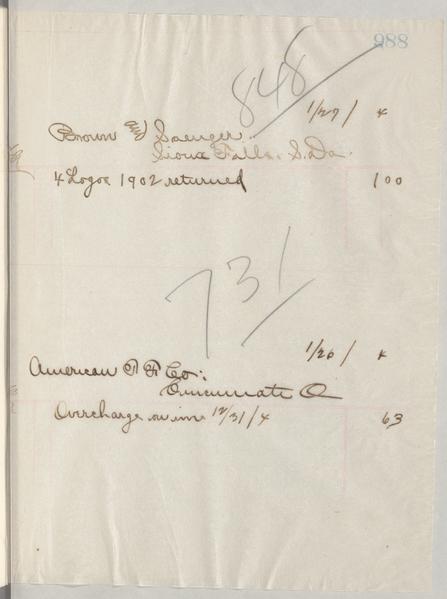 988
848
1/27/ 4
Brown and Saenger.
Sioux Falls. S. Da.
4 Logoe 1902 returned 100
731
1/26/ 4
American T F Co.
Cincinnati O
Overcharge on inv 12/31/4 63